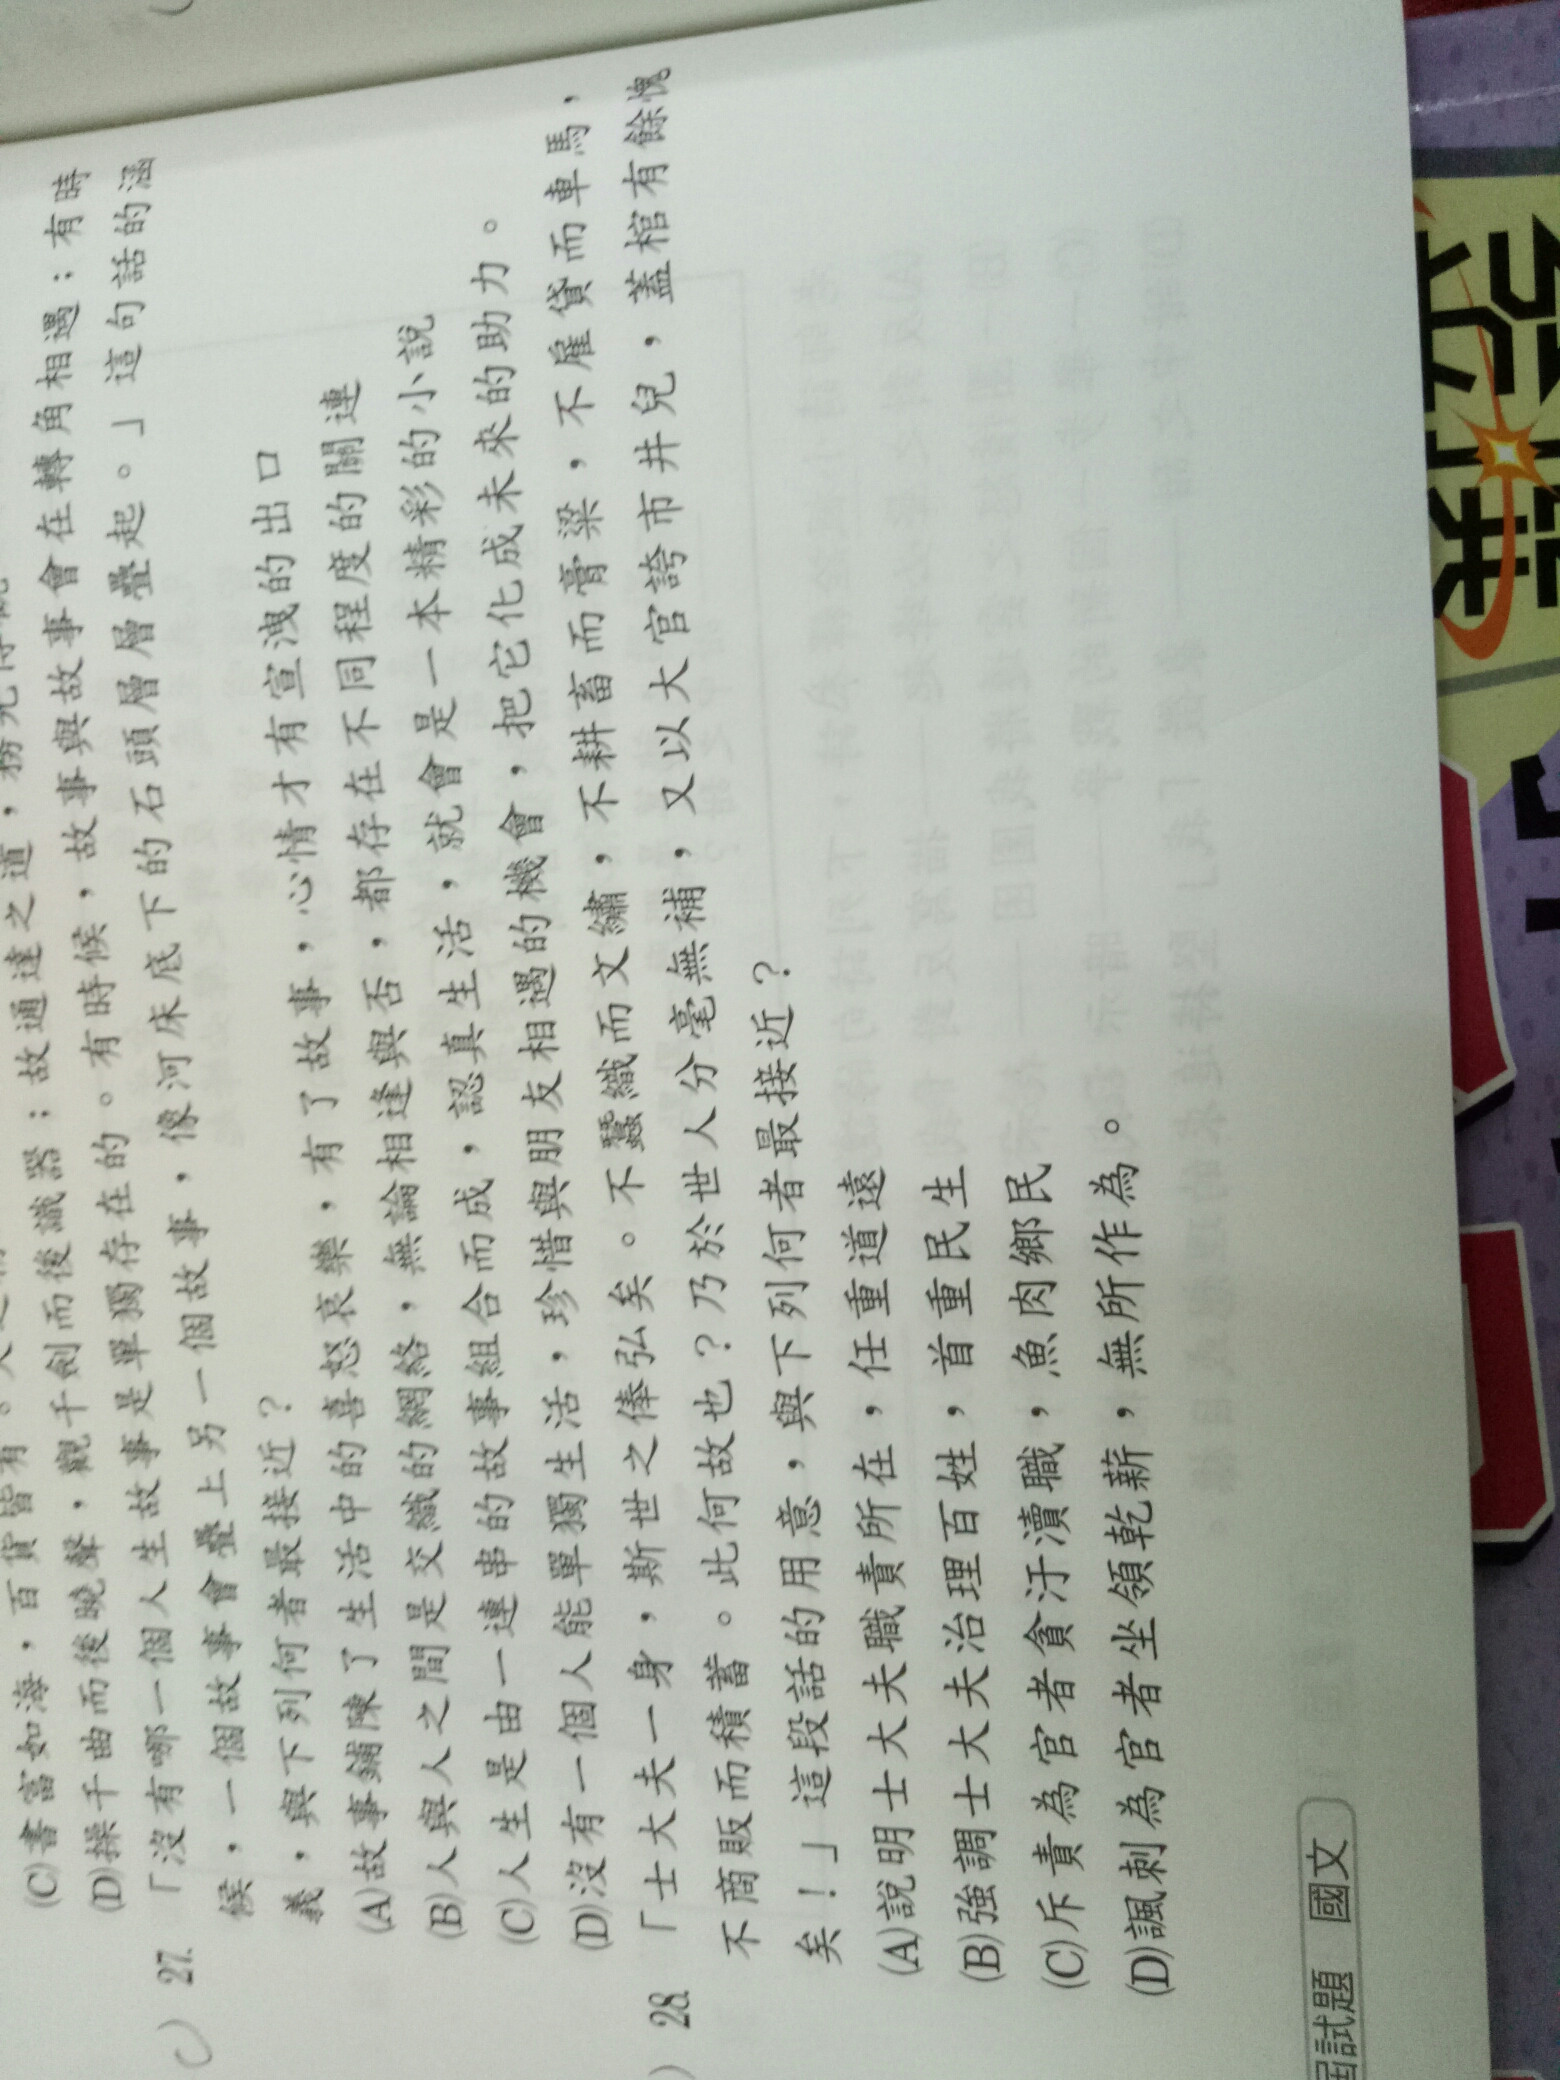 (C)書富如海，百貨皆有。
(D)操千曲而後曉聲，觀千劍而後識器：故通達之道，務先博觀
27.「沒有哪一個人生故事是單獨存在的。有時候，故事與故事會在轉角相遇；有時
候，一個故事會疊上另一個故事，像河床底下的石頭層層疊起。」這句話的涵
義，與下列何者最接近？
(A)故事鋪陳了生活中的喜怒哀樂，有了故事，心情才有宣洩的出口
(B)人與人之間是交織的網絡，無論相逢與否，都存在不同程度的關連
(C)人生是由一連串的故事組合而成，認真生活，就會是一本精彩的小說
(D)沒有一個人能單獨生活，珍惜與朋友相遇的機會，把它化成未來的助力。
) 28.「士大夫一身，斯世之俸弘矣。不蠶織而文繡，不耕畜而膏粱，不雇貸而車馬，
不商販而積蓄。此何故也？乃於世人分毫無補，又以大官誇市井兒，蓋棺有餘愧
矣！」這段話的用意，與下列何者最接近？
(A)說明士大夫職責所在，任重道遠
(B)強調士大夫治理百姓，首重民生
(C)斥責為官者貪汙瀆職，魚肉鄉民
(D)諷刺為官者坐領乾薪，無所作為。
屆試題 國文